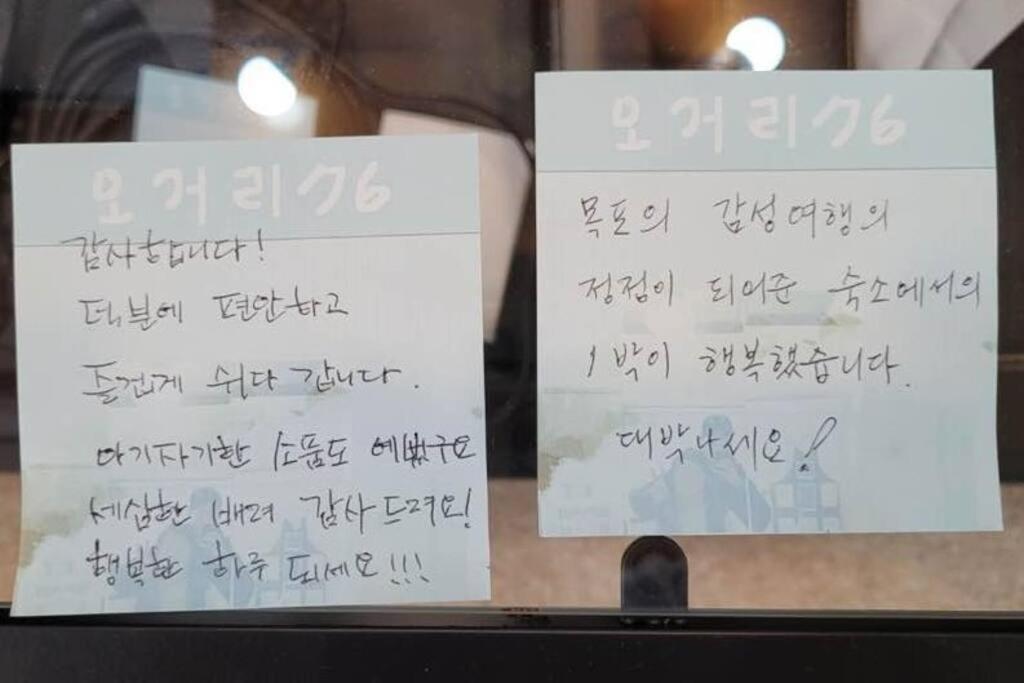 오거리76
감사합니다!
덕분에 편안하고
즐겁게 쉬다 갑니다.
아기자기한 소품도 예뻤구요
세심한 배려 감사드려요!
행복한 하루 되세요!!!
오거리76
목포의 감성여행의
정점이 되어준 숙소에서의
1박이 행복했습니다.
대박나세요!